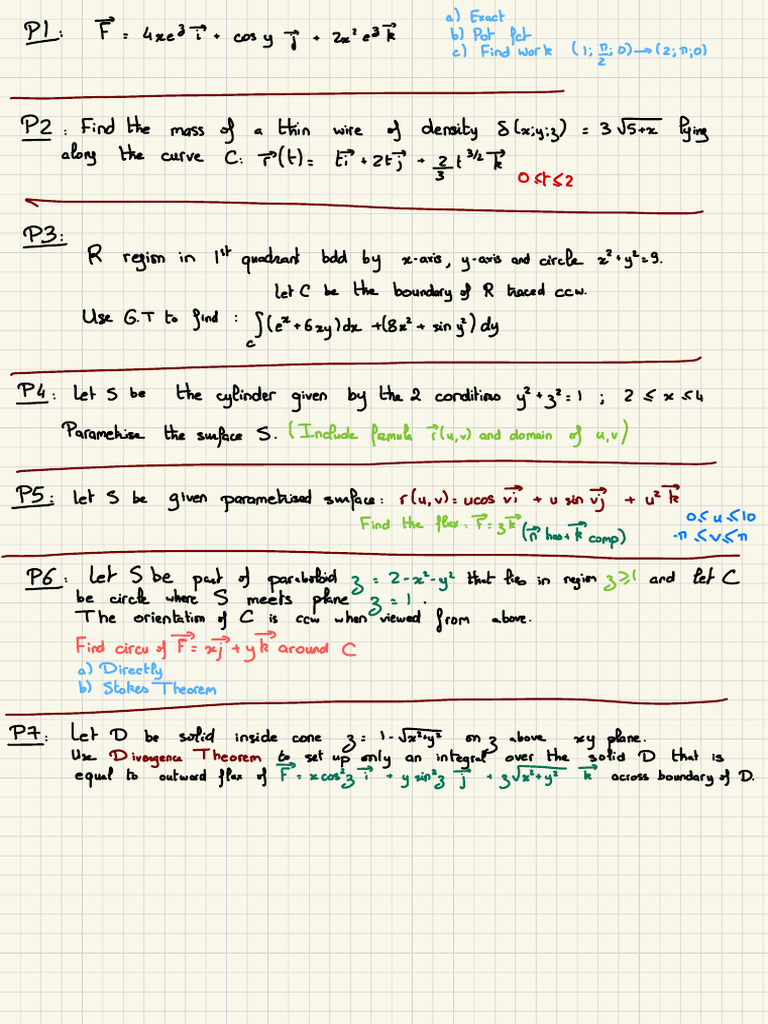 P1: F⃗ = 4xe^z i⃗ + cos y j⃗ + 2x² e^z k⃗
a) Exact
b) Pot fct
c) Find work (1; π/2; 0) → (2; π; 0)
P2: Find the mass of a thin wire of density δ(x;y;z) = 3√(5+x) lying
along the curve C: r⃗(t) = t i⃗ + 2t j⃗ + 2/3 t^(3/2) k⃗
0 ≤ t ≤ 2
P3:
R region in 1st quadrant bdd by x-axis, y-axis and circle x² + y² = 9.
let C be the boundary of R traced ccw.
Use G.T to find : ∫_C (e^x + 6xy) dx + (8x² + sin y²) dy
P4: Let S be the cylinder given by the 2 conditions y² + z² = 1 ; 2 ≤ x ≤ 4
Parametrise the surface S. (Include formula r⃗(u,v) and domain of u,v)
P5: Let S be given parametrised surface: r(u,v) = u cos v i⃗ + u sin v j⃗ + u² k⃗
Find the flux: F⃗ = z k⃗ (n⃗ has + k⃗ comp)
0 ≤ u ≤ 10
-π ≤ v ≤ π
P6: Let S be part of paraboloid z = 2-x²-y² that lies in region z ≥ 1 and let C
be circle where S meets plane z = 1.
The orientation of C is ccw when viewed from above.
Find circu of F⃗ = x j⃗ + y k⃗ around C
a) Directly
b) Stokes Theorem
P7: Let D be solid inside cone z = 1-√(x²+y²) on z above xy plane.
Use Divergence Theorem to set up only an integral over the solid D that is
equal to outward flux of F⃗ = x cos²z i⃗ + y sin²z j⃗ + z√(x²+y²) k⃗ across boundary of D.